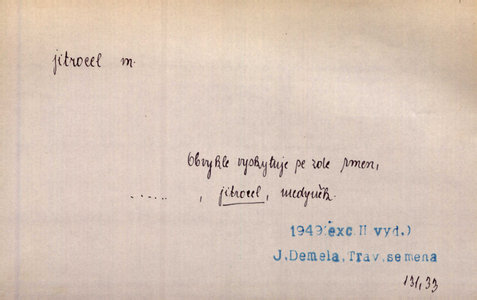 jitrocel m.
Obvykle vyskytuje se zde rmen,
......, jitrocel, medyněk
1949(exc. II vyd.)
J.Demela, Trav. semena
131,33